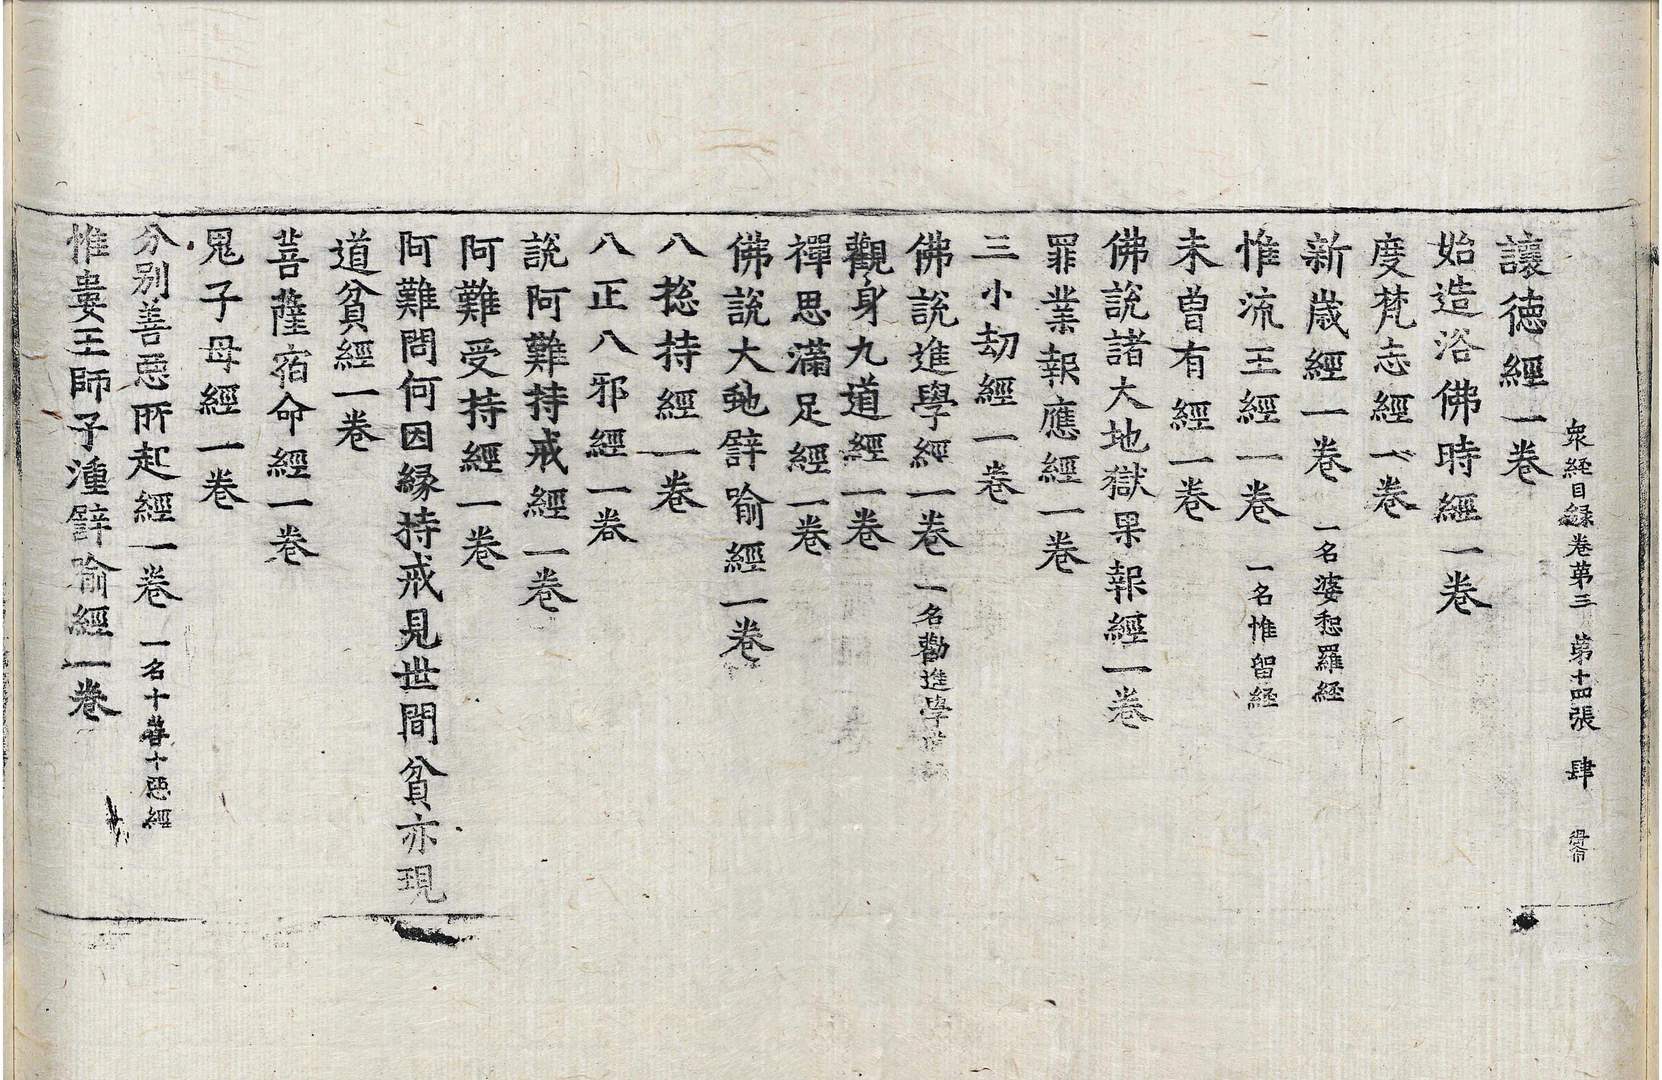 衆経目録卷第三 第十四張 肆
讓徳經一卷
始造浴佛時經一卷
度梵志經一卷
新歳經一卷 一名婆惒羅経
惟流王經一卷 一名惟留経
未曽有經一卷
佛說諸大地獄果報經一卷
罪業報應經一卷
三小劫經一卷
佛說進學經一卷 一名勸進學
觀身九道經一卷
禪思滿足經一卷
佛說大虵譬喻經一卷
八捴持經一卷
八正八邪經一卷
說阿難持戒經一卷
阿難受持經一卷
阿難問何因縁持戒見世間貧亦現
道貧經一卷
菩薩宿命經一卷
鬼子母經一卷
分别善惡所起經一卷 一名十善十惡經
惟婁王師子湩譬喻經一卷